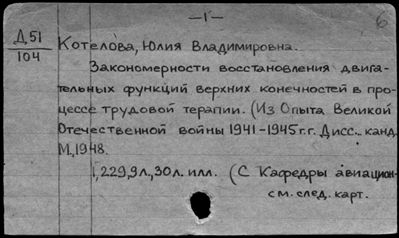 —1—
6
Д 51
104
Котелова, Юлия Владимировна.
Закономерности восстановления двига-
тельных функций верхних конечностей в про-
цессе трудовой терапии. (Из Опыта Великой
Отечественной войны 1941-1945 г.г. Дисс. канд.
М, 1948.
I, 229, 9 л., 30 л. илл. (С Кафедры авиацион-
см. след. карт.